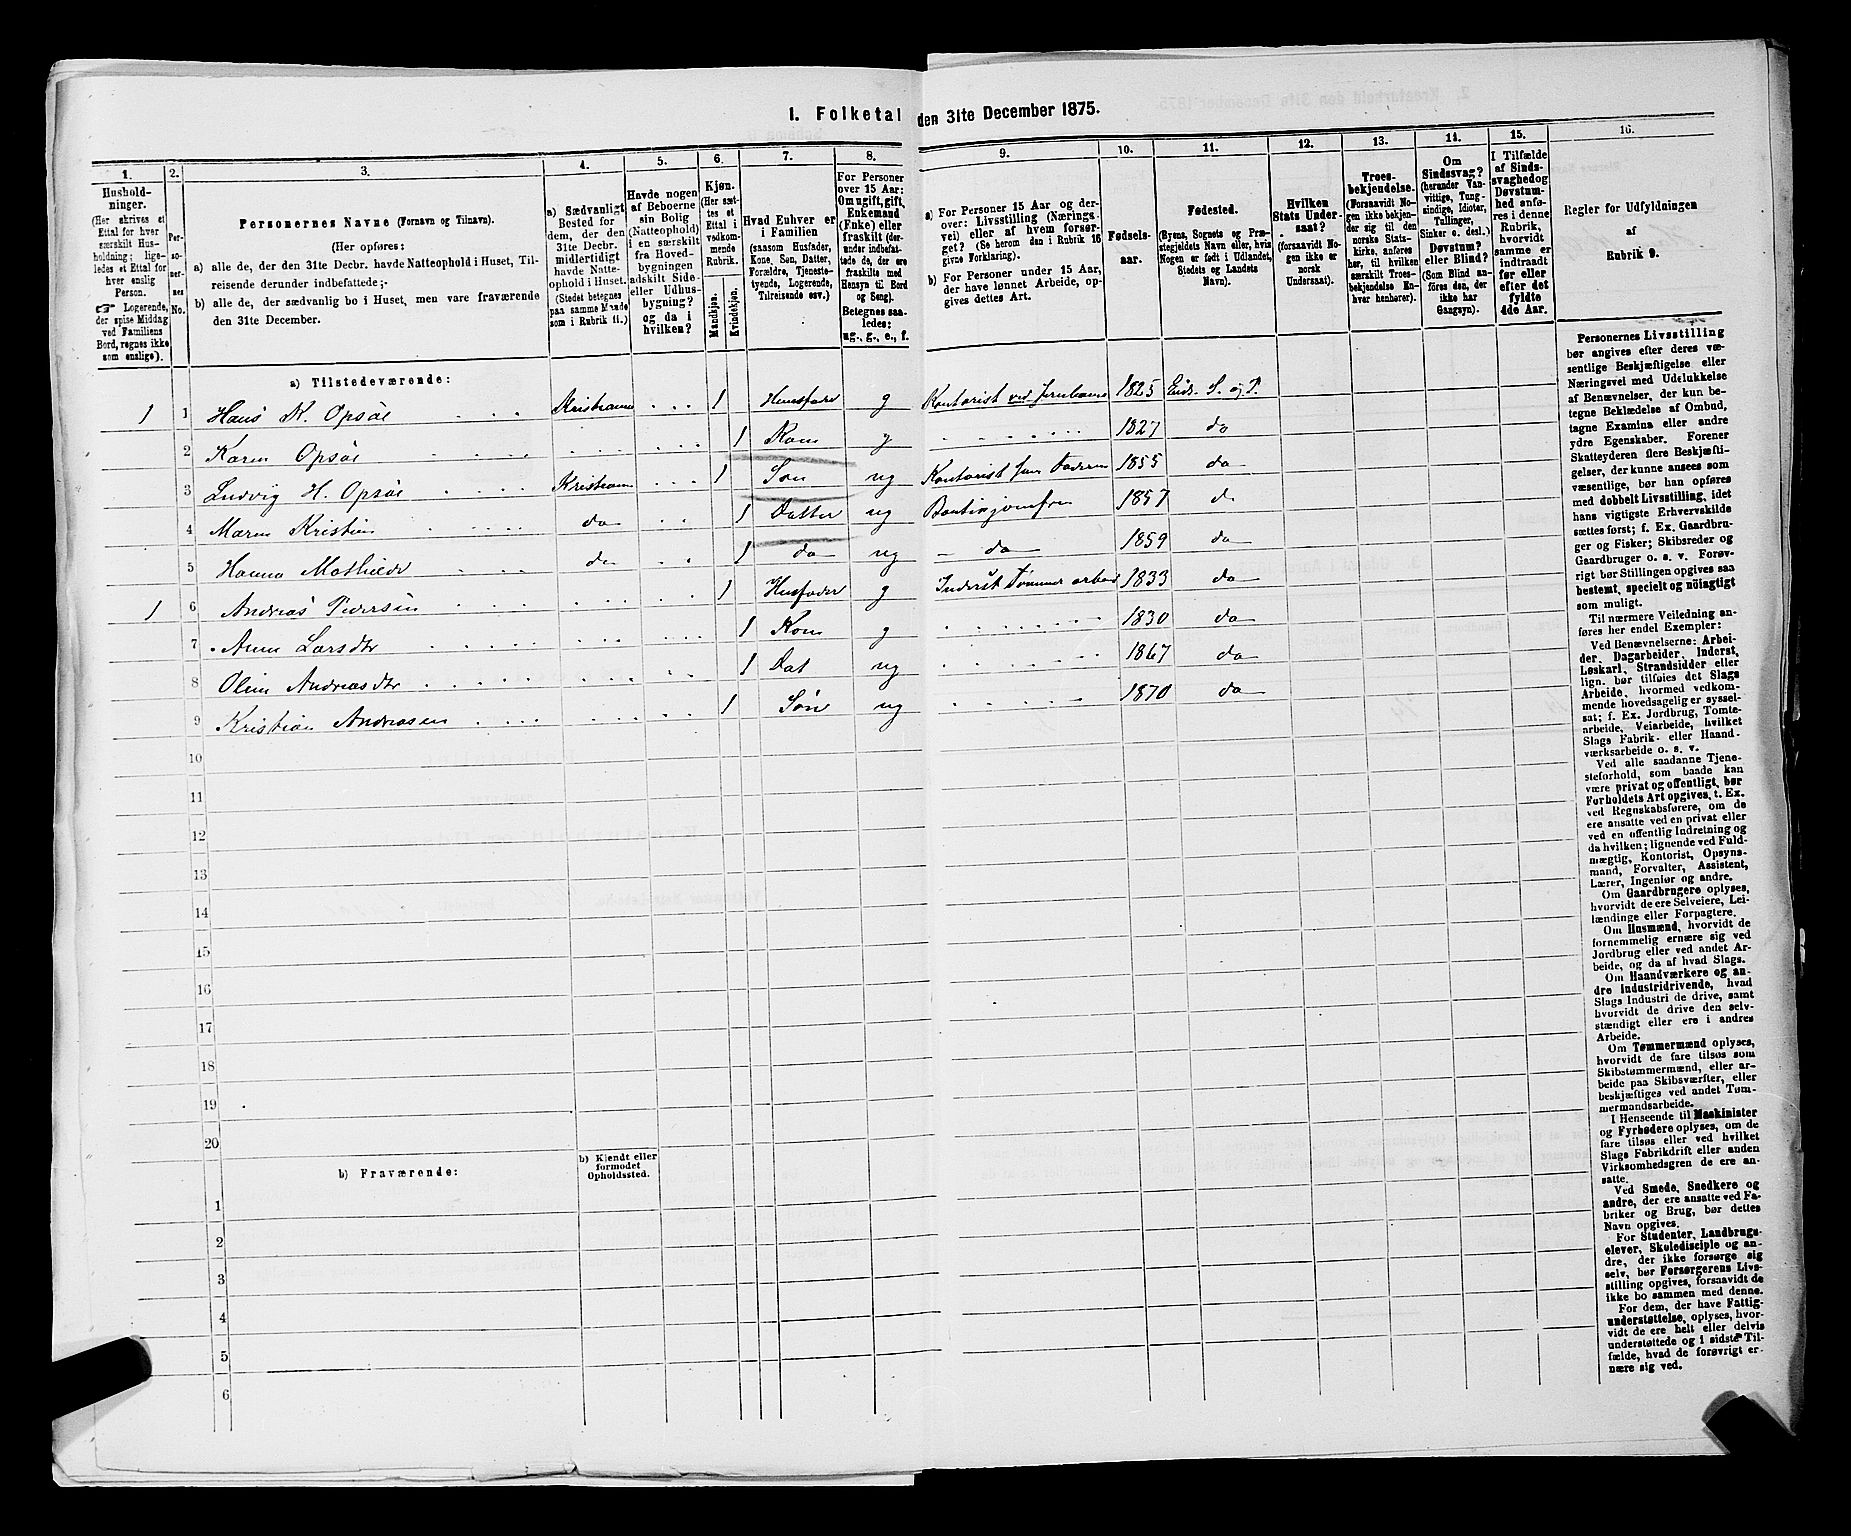 1. Folketal den 31te December 1875.
1. 2. 3. 4. 5. 6. 7. 8. 9. 10. 11. 12. 13. 14. 15. 16.
Hushold-
ninger.
(Her skrives et
Ettal for hver
særskilt Hus-
holdning; lige-
ledes et Ettal for
hver enslig
Person.
☞ Logerende,
der spise Middag
ved Familiens
Bord, regnes ikke
som enslige).
Per-
so-
ner-
nes
No.
Personernes Navne (Fornavn og Tilnavn).
(Her opføres:
a) alle de, der den 31te Decbr. havde Natteophold i Huset, Til-
reisende derunder indbefattede;
b) alle de, der sædvanlig bo i Huset, men vare fraværende
den 31te December.
a) Sædvanligt
Bosted for
dem, der den
31te Decbr.
midlertidigt
havde Natte-
ophold i Huset.
(Stedet betegnes
paa samme Maade
som i Rubrik 11.)
Havde nogen
af Beboerne
sin Bolig
(Natteophold)
i en særskilt
fra Hoved-
bygningen
adskilt Side-
eller Udhus-
bygning?
og da i
hvilken?
Kjøn.
(Her sæt-
tes et
Ettal i
vedkom-
mende
Rubrik.
Mandkjøn.
Kvindekjøn.
Hvad Enhver er
i Familien
(saasom Husfader,
Kone, Søn, Datter,
Forældre, Tjeneste-
tyende, Logerende,
Tilreisende osv.)
For Personer
over 15 Aar:
Om ugift, gift,
Enkemand
(Enke) eller
fraskilt (der-
under indbefat-
tede de, der ere
fraskilte med
Hensyn til Bord
og Seng).
Betegnes saa-
ledes:
ug., g., e., f.
a) For Personer 15 Aar og der-
over: Livsstilling (Nærings-
vei) eller af hvem forsør-
get? (Se herom den i Rubrik 16
givne Forklaring).
b) For Personer under 15 Aar,
der have lønnet Arbeide, op-
gives dettes Art.
Fødsels-
aar.
Fødested.
(Byens, Sognets og Præ-
stegjeldets Navn eller, hvis
Nogen er født i Udlandet,
Stedets og Landets
Navn).
Hvilken
Stats Under-
saat?
(forsaavidt No-
gen ikke er
norsk
Undersaat).
Troes-
bekjendelse.
(Forsaavidt No-
gen ikke bekjen-
der sig til den
norske Stats-
kirke, anføres
her, til hvilken
særskilt Troes-
bekjendelse En-
hver henhører).
Om
Sindssvag?
(herunder Van-
vittige, Tung-
sindige, Idioter,
Tullinger,
Sinker o. desl.)
Døvstum?
eller Blind?
(Som Blind an-
føres den, der
ikke har
Gangsyn).
I Tilfælde
af Sinds-
svaghed og
Døvstum-
hed anfø-
res i denne
Rubrik,
hvorvidt
samme er
indtraadt
før eller
efter det
fyldte
4de Aar.
Regler for Udfyldningen
af
Rubrik 9.
a) Tilstedeværende:
1 1 Hans K. Opsøe Kristiania 1 Huusfader g Kontorist ved Jernbanen 1825 Eids. S. og P.
2 Karen Opsøe 1 Kone g 1827 do
3 Ludvig H. Opsøe Kristiania 1 Søn ug Kontorist hos Faderen 1855 do
4 Maren Kristine do 1 Datter ug 1857 do
5 Hanna Mathilde do 1 do ug do 1859 do
1 6 Andreas Pedersen 1 Husfader g Inderst Tømmer arbeid 1833 do
7 Anne Larsdtr 1 Kone g 1830 do
8 Oline Andreasdtr 1 Dat ug 1867 do
9 Kristian Andreasen 1 Søn ug 1870 do
10
11
12
13
14
15
16
17
18
19
20
b) Fraværende:
b) Kjendt eller
formodet
Opholdssted.
1
2
3
4
5
6
Personernes Livsstilling
bør angives efter deres væ-
sentlige Beskjæftigelse eller
Næringsvei med Udelukkelse
af Benævnelser, der kun be-
tegne Beklædelse af Ombud,
tagne Examina eller andre
ydre Egenskaber. Forener
Skatteyderen flere Beskjæfti-
gelser, der kunne ansees som
væsentlige, bør han opføres
med dobbelt Livsstilling, idet
hans vigtigste Erhvervskilde
sættes først; f. Ex. Gaardbru-
ger og Fisker; Skibsreder og
Gaardbruger o. s. v. Forøv-
rigt bør Stillingen opgives saa
bestemt, specielt og nöiagtigt
som muligt.
Til nærmere Veiledning an-
føres her endel Exempler:
Ved Benævnelserne: Arbei-
der, Dagarbeider, Inderst,
Løskarl, Strandsidder eller
lign. bør tilføies det Slags
Arbeide, hvormed vedkom-
mende hovedsagelig er syssel-
sat; f. Ex. Jordbrug, Tomte-
arbeide, Veiarbeide, hvilket
Slags Fabrik- eller Haand-
værksarbeide o. s. v.
Ved alle saadanne Tjene-
steforhold, som baade kan
være privat og offentligt, bør
Forholdets Art opgives, t. Ex.
ved Regnskabsførere, om de
ere ansatte ved en privat eller
ved en offentlig Indretning og
da hvilken; lignende ved Fuld-
mægtig, Kontorist, Opsyns-
mand, Forvalter, Assistent,
Lærer, Ingeniør og andre.
Om Gaardbrugere oplyses,
hvorvidt de ere Selveiere, Lei-
lændinge eller Forpagtere.
Om Husmænd, hvorvidt de
fornemmelig ernære sig ved
Jordbrug eller ved andet Ar-
beide, og da af hvad Slags.
Om Haandværkere og an-
dre Industridrivende, hvad
Slags Industri de drive, samt
hvorvidt de drive den selv-
stændigt eller ere i andres
Arbeide.
Om Tømmermænd oplyses,
hvorvidt de fare tilsøs som
Skibstømmermænd, eller ar-
beide paa Skibsværfter, eller
beskjæftiges ved andet Tøm-
mermandsarbeide.
I Henseende til Maskinister
og Fyrbødere oplyses, om de
fare tilsøs eller ved hvilket
Slags Fabrikdrift eller anden
Virksomhedsgren de ere an-
satte.
Ved Smede, Snedkere og
andre, der ere ansatte ved Fa-
briker og Brug, bør dettes
Navn opgives.
For Studenter, Landbrugs-
elever, Skoledisciple og an-
dre, der ikke forsørge sig
selv, bør Forsørgerens Livs-
stilling opgives, forsaavidt de
ikke bo sammen med denne.
For dem, der have Fattig-
understøttelse, oplyses, hvor-
vidt de ere helt eller delvis
understøttede og i sidste Til-
fælde, hvad de forøvrigt er-
nære sig ved.